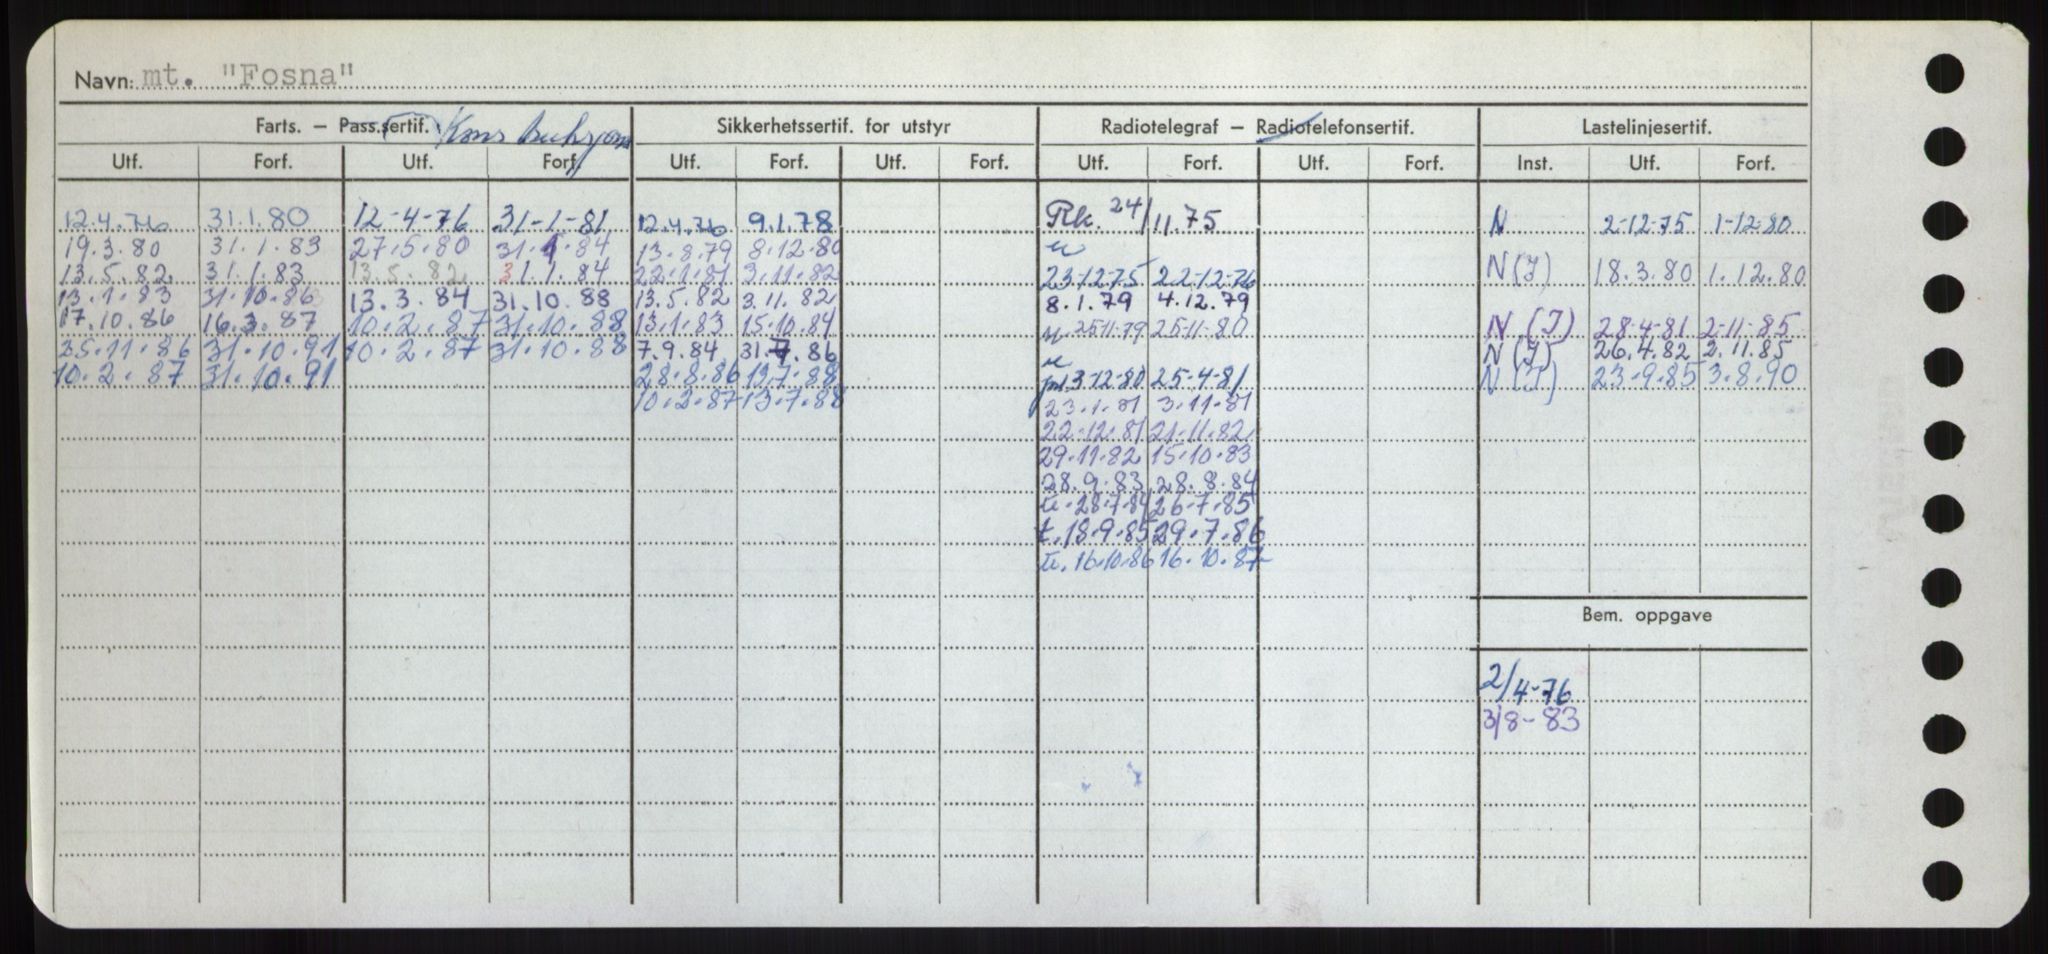 Navn: mt. "Fosna"
Farts. – Pass.sertif. Sikkerhetssertif. for utstyr Radiotelegraf – Radiotelefonsertif. Lastelinjesertif.
Utf. Forf. Utf. Forf. Utf. Forf. Utf. Forf. Utf. Forf. Utf. Forf. Inst. Utf. Forf.
12.4.76 31.1.80 12-4-76 31-1-81 12.4.76 9.1.78 Rk. 24/11.75 N 2-12-75 1-12-80
19.3.80 31.1.83 27.5.80 31.1.84 13.8.79 8.12.80
13.5.82 31.1.83 13.5.82 31.1.84 22.1.81 3.11.82 23-12-75 22-12-76 N(I) 18.3.80 1.12.80
13.1.83 31.10.86 13.3.84 31.10.88 13.5.82 3.11.82 8.1.79 4.12.79
17.10.86 16.3.87 10.2.87 31.10.88 13.1.83 15.10.84 25-11-79 25-11-80 N(I) 28-4-81 2-11-85
25.11.86 31.10.91 10.2.87 31.10.88 7.9.84 31.7.86 N(I) 26.4.82 2.11.85
10.2.87 31.10.91 28.8.86 13.7.88 13-12-80 25-4-81 N(I) 23-9-85 3.8.90
10.2.87 13.7.88 23.1.81 3.11.81
22-12-81 21-11-82
29.11.82 15.10.83
28.9.83 28.8.84
ti. 28-7-84 26-7-85
t. 18.9.85 29.7.86
ti. 16.10.86 16.10.87
Bem. oppgave
2/4-76
3/8-83